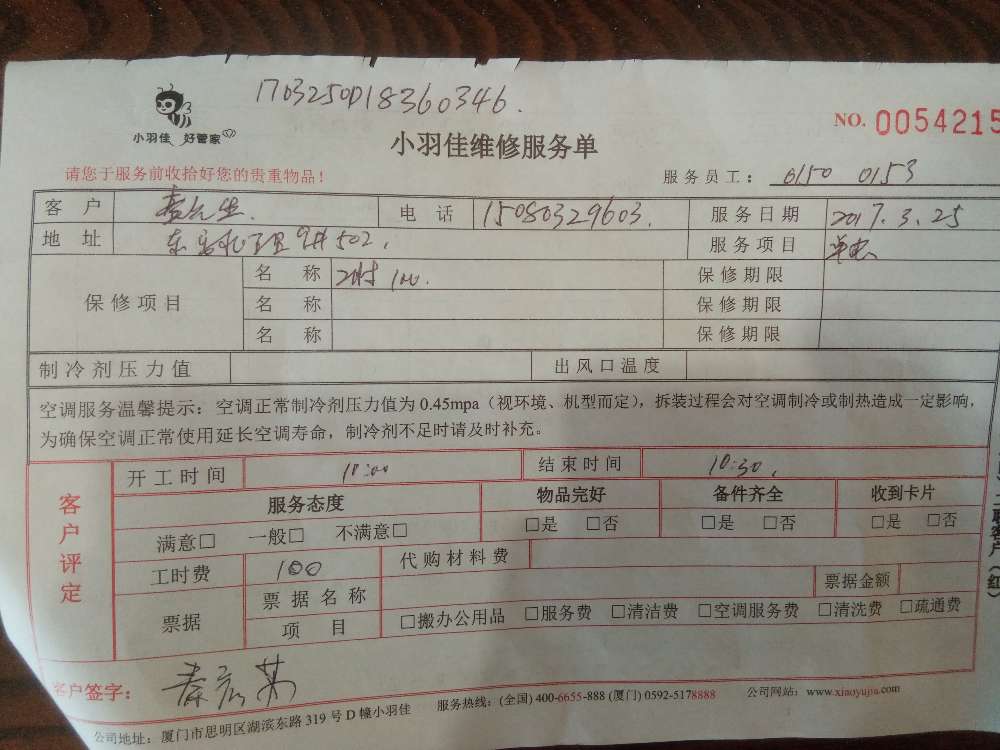 17032500183603​46.
小羽佳 好管家
NO. 0054215
小羽佳维修服务单
请您于服务前收拾好您的贵重物品！
服务员工： 6150 0153
客户 先生. 电话 15080329603. 服务日期 2017.3.25
地址 502. 服务项目
保修项目 名称 100. 保修期限
名称 保修期限
名称 保修期限
制冷剂压力值 出风口温度
空调服务温馨提示：空调正常制冷剂压力值为0.45mpa（视环境、机型而定），拆装过程会对空调制冷或制热造成一定影响，
为确保空调正常使用延长空调寿命，制冷剂不足时请及时补充。
客户评定
开工时间 10:00 结束时间 10:30.
服务态度 物品完好 备件齐全 收到卡片
满意□ 一般□ 不满意□ □是 □否 □是 □否 □是 □否
工时费 100 代购材料费
票据 票据名称 票据金额
项目 □搬办公用品 □服务费 □清洁费 □空调服务费 □清洗费 □疏通费
客户签字：
公司地址：厦门市思明区湖滨东路319号D幢小羽佳 服务热线：(全国) 400-6655-888 (厦门) 0592-5178888 公司网站：www.xiaoyujia.com
客户（红）